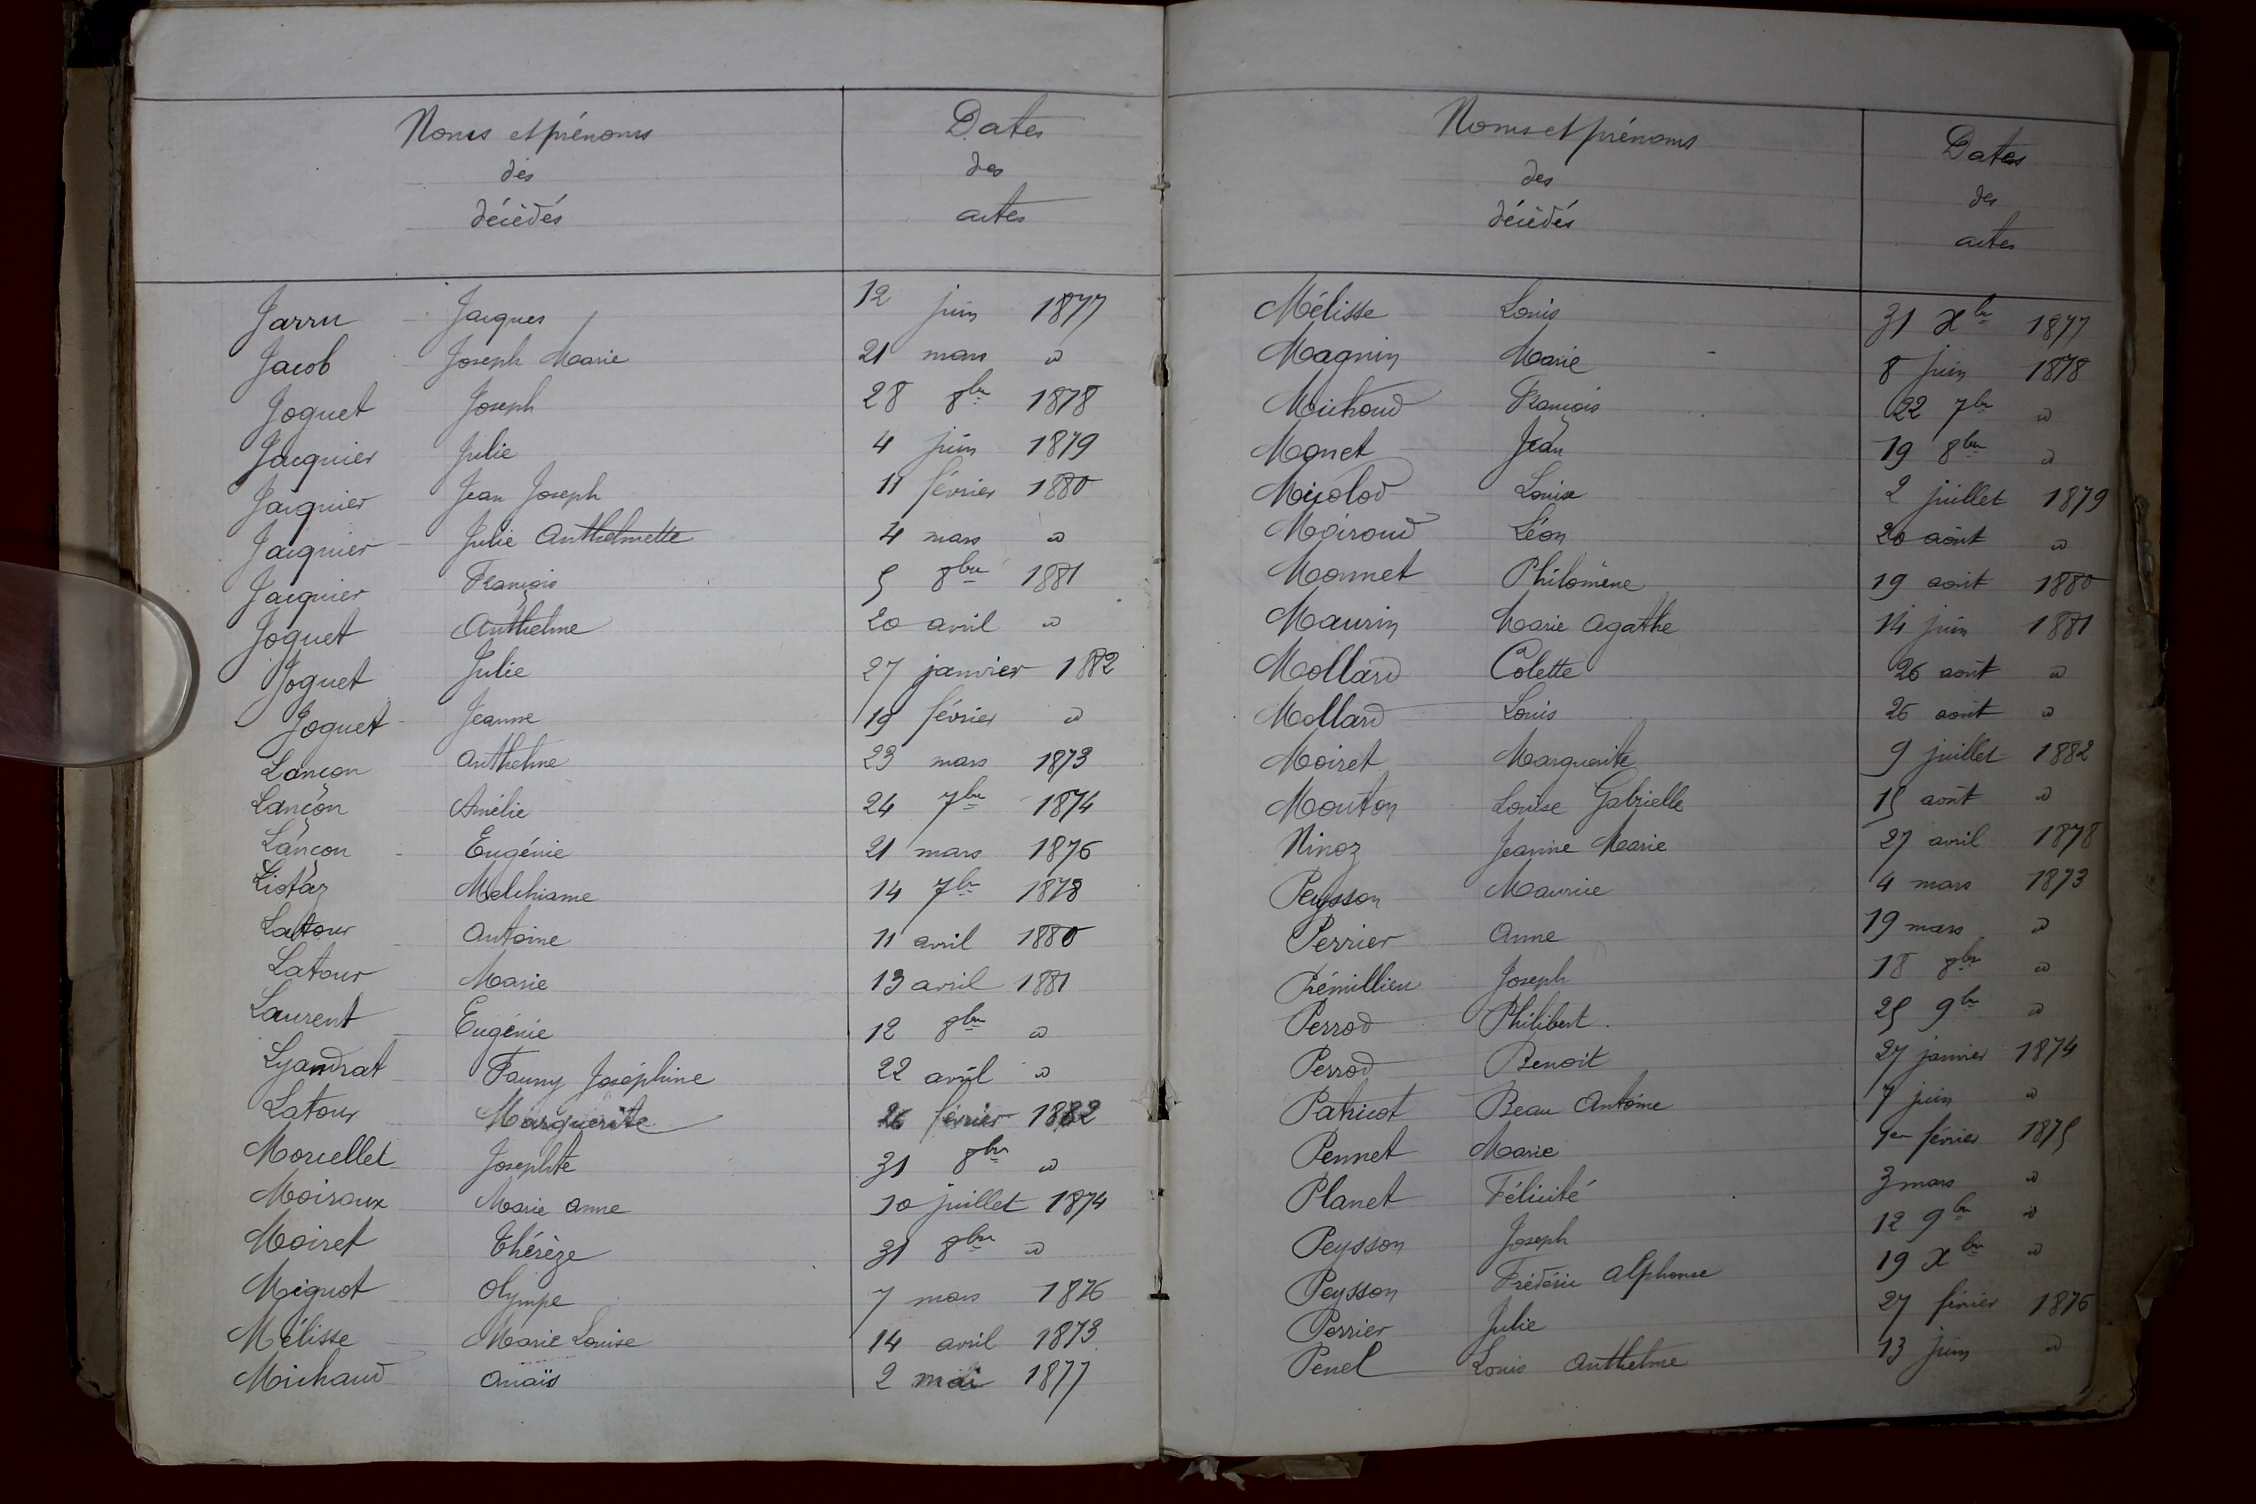 Noms et prénoms
des
décédés
Dates
des
actes
Jarru Jacques 12 juin 1877
Jacob Joseph Marie 21 mars d
Joguet Joseph 28 8bre 1878
Jacquier Julie 4 juin 1879
Jacquier Jean Joseph 11 février 1880
Jacquier Julie Anthelmette 4 mars d
Jacquier François 5 8bre 1881
Joguet Anthelme 20 avril d
Joguet Julie 27 janvier 1882
Joguet Jeanne 19 février d
Lançon Anthelme 23 mars 1873
Lançon Amélie 24 7bre 1874
Lançon Eugénie 21 mars 1876
Liotaz Melchiame 14 7bre 1878
Latour Antoine 11 avril 1880
Latour Marie 13 avril 1881
Laurent Eugénie 12 8bre d
Lyandrat Fanny Joséphine 22 avril d
Latour Marguerite 26 février 1882
Morcellet Josephte 31 8bre d
Moiroux Marie Anne 10 juillet 1874
Moiret Thérèze 31 8bre d
Mignot Olympe 7 mars 1876
Mélisse Marie Louise 14 avril 1873
Michaud Anaïs 2 mai 1877
Noms et prénoms
des
décédés
Dates
des
actes
Mélisse Louis 31 Xbre 1877
Magnin Marie 8 juin 1878
Michoud François 22 7bre d
Monet Jean 19 8bre d
Micolod Louise 2 juillet 1879
Méroud Léon 20 août d
Monnet Philomène 19 août 1880
Maurin Marie Agathe 14 juin 1881
Mollard Colette 26 août d
Mollard Louis 26 août d
Moiret Marguerite 9 juillet 1882
Mouton Louise Gabrielle 15 août d
Ninoz Jeanne Marie 27 avril 1878
Peysson Maurice 4 mars 1873
Perrier Anne 19 mars d
Prémillieu Joseph 18 8bre d
Perrod Philibert 25 9bre d
Perrod Benoit 27 janvier 1874
Patricot Beau Antoine 7 juin d
Pennet Marie 1er février 1875
Planet Félicité 3 mars d
Peysson Joseph 12 9bre d
Peysson Frédéric Alphonse 19 Xbre d
Perrier Julie 27 février 1876
Penel Louis Anthelme 13 juin d